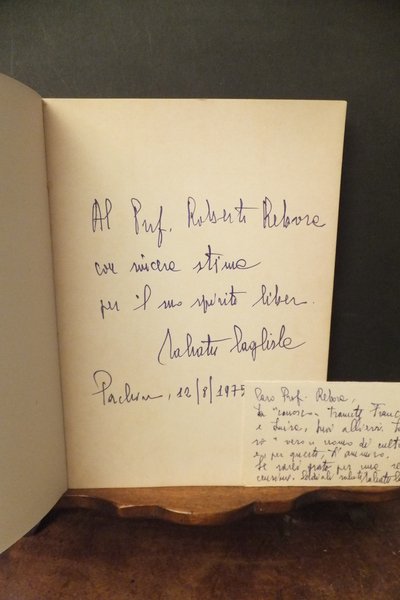 Al Prof. Roberto Rebora
con sincera stima
per il suo spirito liber.
Salvatore
Pachino, 12/8/1975
Caro Prof. Rebora,
La "conosco" tramite
e Luisa, suoi allievi.
so "vero" uomo di
e, per questo, l'ammiro.
Le sarò grato per una
saluti Salvatore